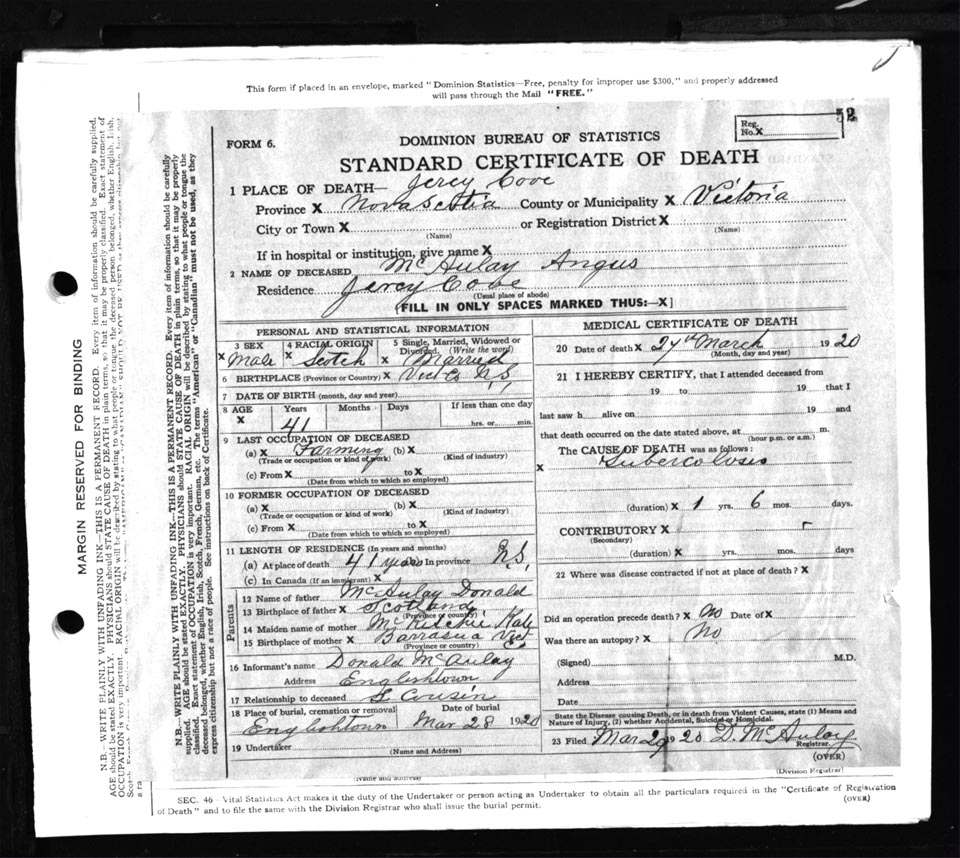 This form if placed in an envelope, marked "Dominion Statistics—Free, penalty for improper use $300," and properly addressed
will pass through the Mail "FREE."
MARGIN RESERVED FOR BINDING
N.B.—WRITE PLAINLY WITH UNFADING INK—THIS IS A PERMANENT RECORD. Every item of information should be carefully supplied.
AGE should be stated EXACTLY. PHYSICIANS should STATE CAUSE OF DEATH in plain terms, so that it may be properly classified. Exact statement of
OCCUPATION is very important. RACIAL ORIGIN will be described by stating to what people or tongue the deceased person belonged, whether English, Irish,
N.B.—WRITE PLAINLY WITH UNFADING INK—THIS IS A PERMANENT RECORD. Every item of information should be carefully
supplied. AGE should be stated EXACTLY. PHYSICIANS should STATE CAUSE OF DEATH in plain terms, so that it may be properly
classified. Exact statement of OCCUPATION is very important. RACIAL ORIGIN will be described by stating to what people or tongue the
deceased belonged, whether English, Irish, Scotch, French, German, etc. The terms "American" or "Canadian" must not be used, as they
express citizenship but not a race of people. See instructions on back of Certificate.
FORM 6.
DOMINION BUREAU OF STATISTICS
Reg. No. X 52
STANDARD CERTIFICATE OF DEATH
1 PLACE OF DEATH— Jercy Cove
Province X Nova Scotia County or Municipality X Victoria
City or Town X or Registration District X
(Name) (Name)
If in hospital or institution, give name X
2 NAME OF DECEASED McAulay Angus
Residence Jercy Cove
(Usual place of abode)
(FILL IN ONLY SPACES MARKED THUS:—X)
PERSONAL AND STATISTICAL INFORMATION
3 SEX 4 RACIAL ORIGIN 5 Single, Married, Widowed or Divorced. (Write the word)
X Male X Scotch X Married
6 BIRTHPLACE (Province or Country) X Vict Co N S,
7 DATE OF BIRTH (month, day and year)
8 AGE X Years Months Days If less than one day
41 hrs. or min.
9 LAST OCCUPATION OF DECEASED
(a) X Farming (b) X
(Trade or occupation or kind of work) (Kind of industry)
(c) From X to X
(Date from which to which so employed)
10 FORMER OCCUPATION OF DECEASED
(a) X (b) X
(Trade or occupation or kind of work) (Kind of Industry)
(c) From X to X
(Date from which to which so employed)
11 LENGTH OF RESIDENCE (In years and months)
(a) At place of death 41 years In province N S,
(c) In Canada (If an immigrant) X
Parents
12 Name of father McAulay Donald
13 Birthplace of father X Scotland
(Province or country)
14 Maiden name of mother McRitchie Kate
15 Birthplace of mother X Barrasua Vict
(Province or country)
16 Informant's name Donald McAulay
Address Englishtown
17 Relationship to deceased Cousin
18 Place of burial, cremation or removal Date of burial
Englishtown Mar 28 1920
19 Undertaker
(Name and Address)
MEDICAL CERTIFICATE OF DEATH
20 Date of death X 27th March 1920
(Month, day and year)
21 I HEREBY CERTIFY, that I attended deceased from
19 to 19 that I
last saw h alive on 19 and
that death occurred on the date stated above, at m.
(hour p.m. or a.m.)
The CAUSE OF DEATH was as follows:
X Tubercolosis
(duration) X 1 yrs. 6 mos. days.
CONTRIBUTORY X
(Secondary)
(duration) X yrs. mos. days
22 Where was disease contracted if not at place of death? X
Did an operation precede death? X No Date of X
Was there an autopsy? X No
(Signed) M.D.
Address
Date
State the Disease causing Death, or in death from Violent Causes, state (1) Means and
Nature of Injury, (2) whether Accidental, Suicidal or Homicidal.
23 Filed Mar 29 1920 D. McAulay
Registrar.
(OVER)
(Name and address)
(Division Registrar)
SEC. 46—Vital Statistics Act makes it the duty of the Undertaker or person acting as Undertaker to obtain all the particulars required in the "Certificate of Registration
of Death" and to file the same with the Division Registrar who shall issue the burial permit.
(OVER)